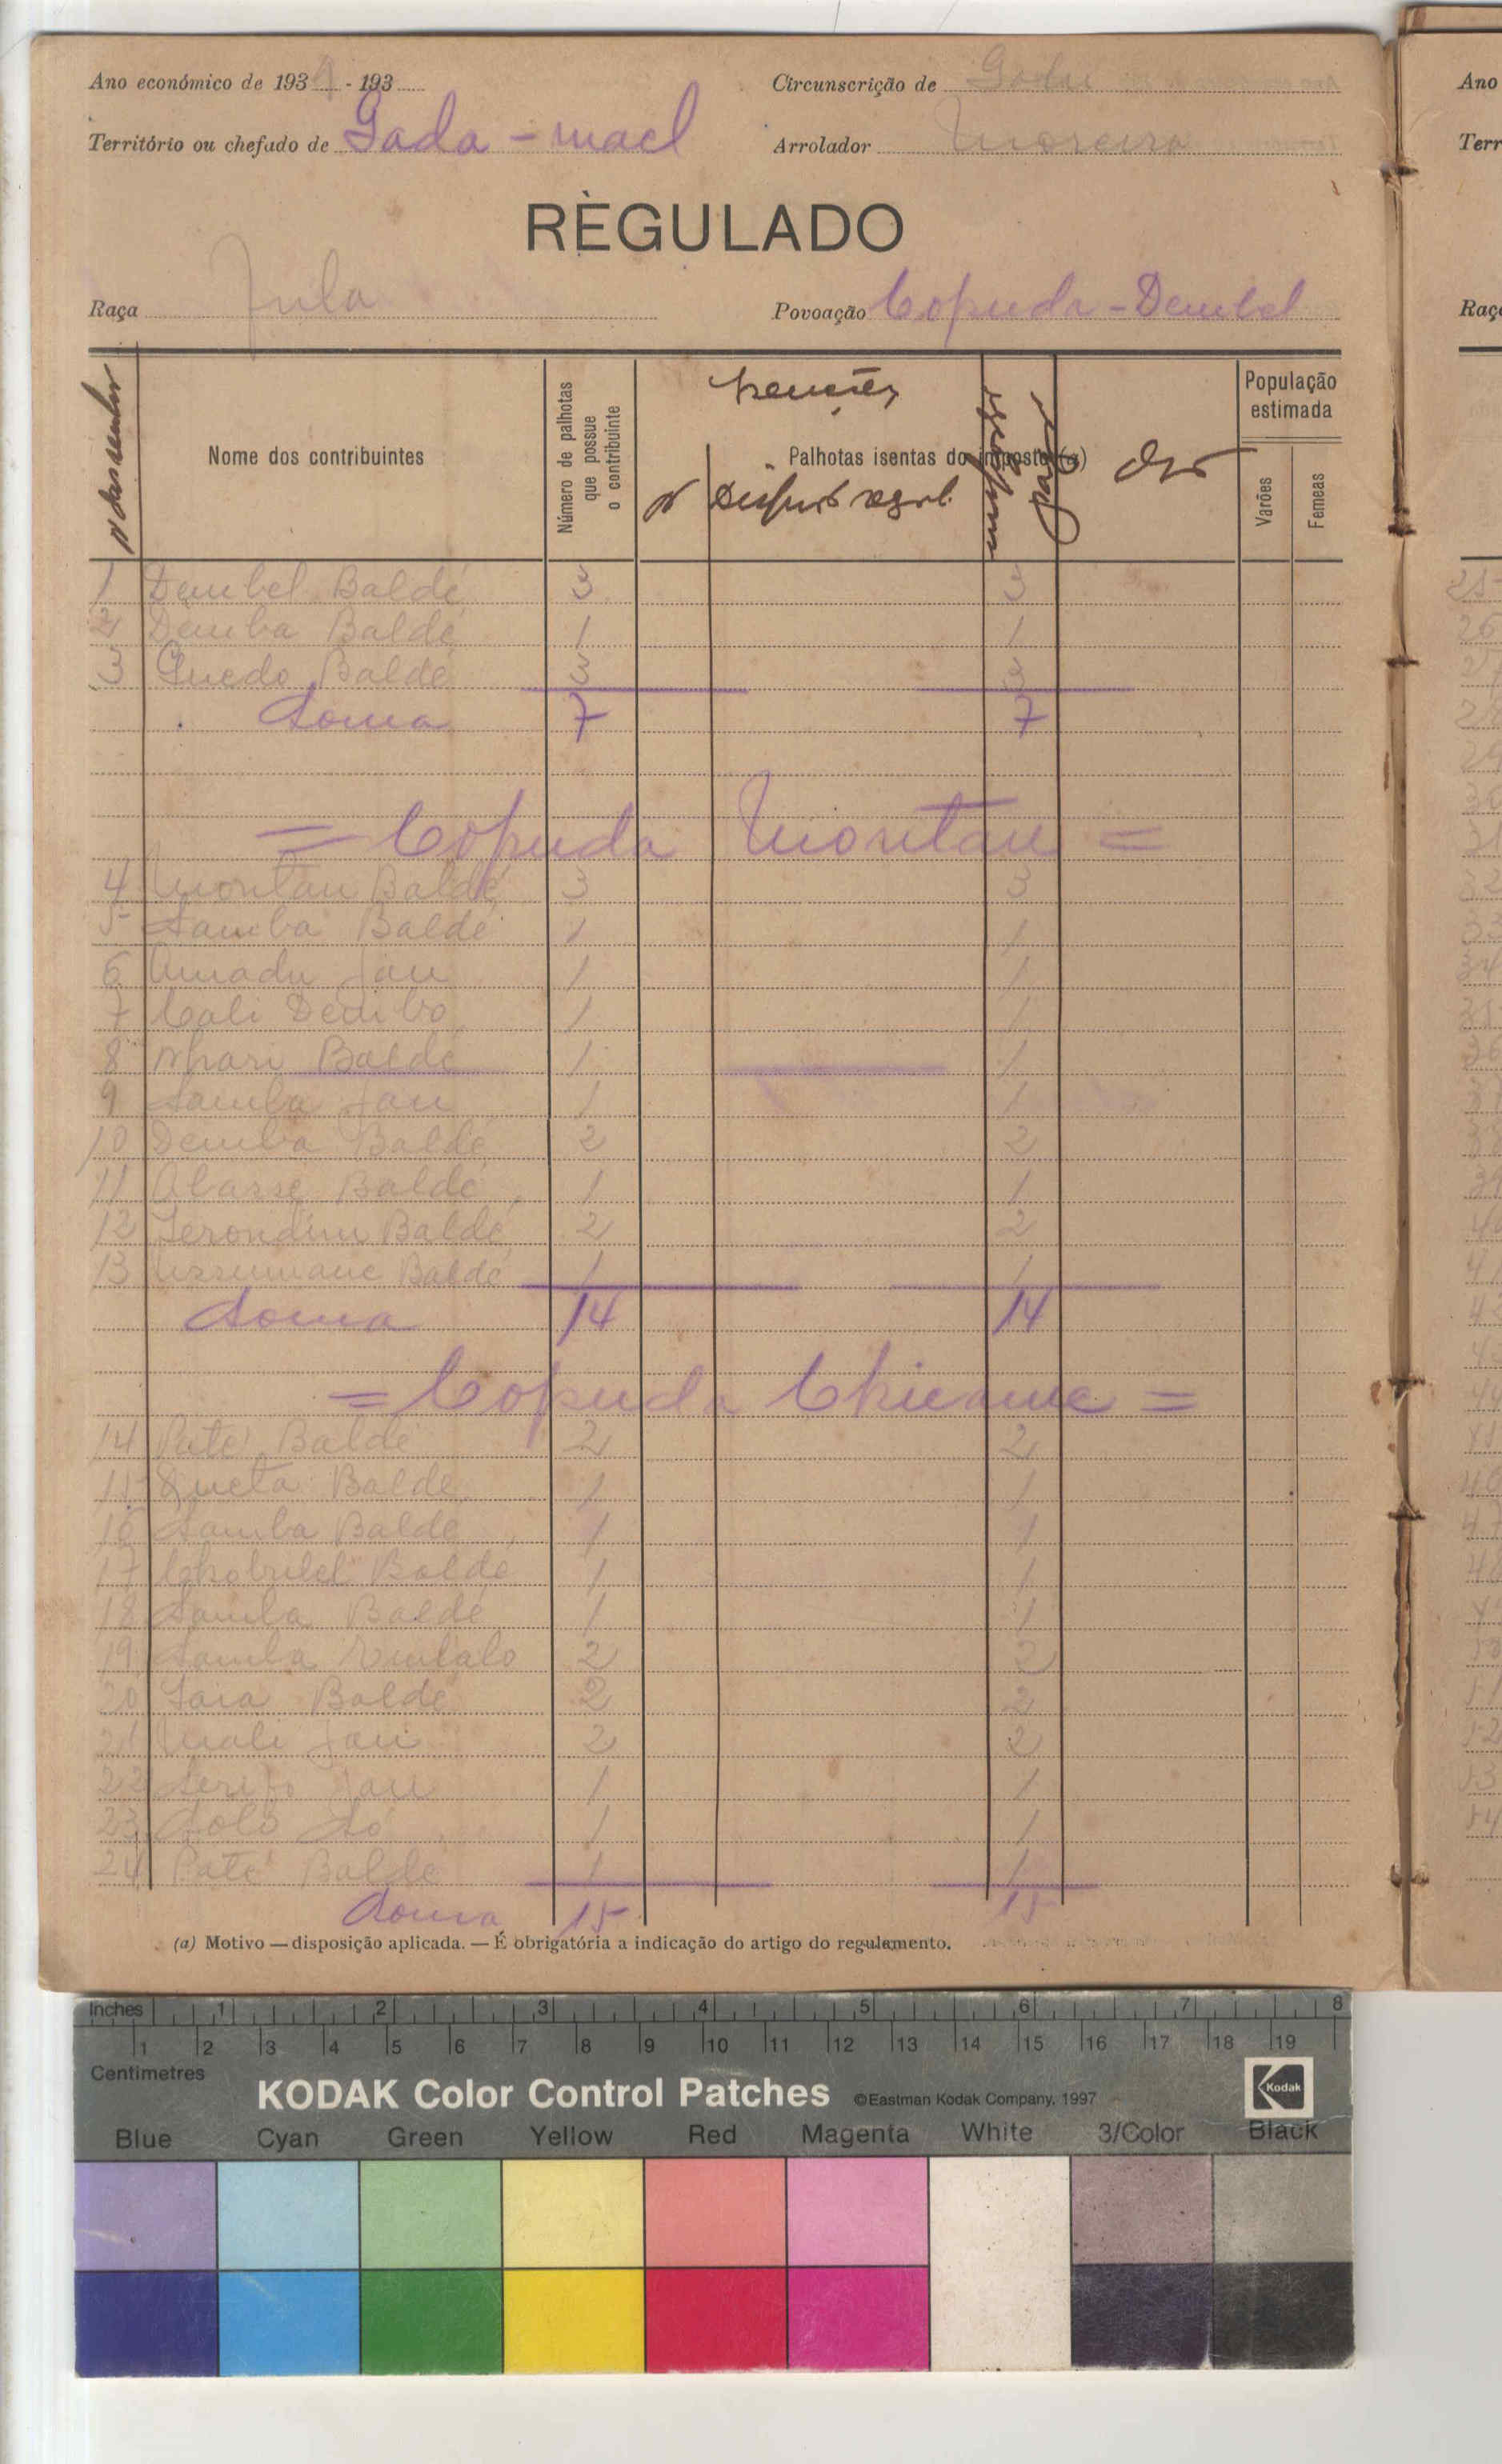 Ano económico de 1934 - 193
Circunscrição de Gabu
Território ou chefado de Gada - mael
Arrolador Moreira
RÈGULADO
Raça Fula
Povoação Copuda - Dembel
Nome dos contribuintes
Número de palhotas que possue o contribuinte
Isenções
Palhotas isentas do imposto (a)
Nº
Obs
População estimada
Varões
Femeas
1 Dembel Baldé 3 3
2 Demba Baldé 1 1
3 Guedo Baldé 3 3
Soma 7 7
= Copuda Montau =
4 Montau Baldé 3 3
5 Samba Baldé 1 1
6 Amadu Jau 1 1
7 Cali Dembo 1 1
8 Nhari Baldé 1 1
9 Samba Jau 1 1
10 Demba Baldé 2 2
11 Abasse Baldé 1 1
12 Serondim Baldé 2 2
13 Ussumane Baldé 1 1
Soma 14 14
= Copuda Chicame =
14 Paté Baldé 2 2
15 Queta Baldé 1 1
16 Samba Baldé 1 1
17 Chobulel Baldé 1 1
18 Samba Baldé 1 1
19 Samba Embalo 2 2
20 Saia Baldé 2 2
21 Uali Jau 2 2
22 Serifo Jau 1 1
23 Solo Só 1 1
24 Paté Baldé 1 1
Soma 15 15
(a) Motivo — disposição aplicada. — É obrigatória a indicação do artigo do regulamento.
Ano
Terr
Raç
25
26
27
28
29
30
31
32
33
34
35
36
37
38
39
40
41
42
43
44
45
46
47
48
49
50
51
52
53
54
Inches 1 2 3 4 5 6 7 8
1 2 3 4 5 6 7 8 9 10 11 12 13 14 15 16 17 18 19
Centimetres
KODAK Color Control Patches ©Eastman Kodak Company, 1997 Kodak
Blue Cyan Green Yellow Red Magenta White 3/Color Black